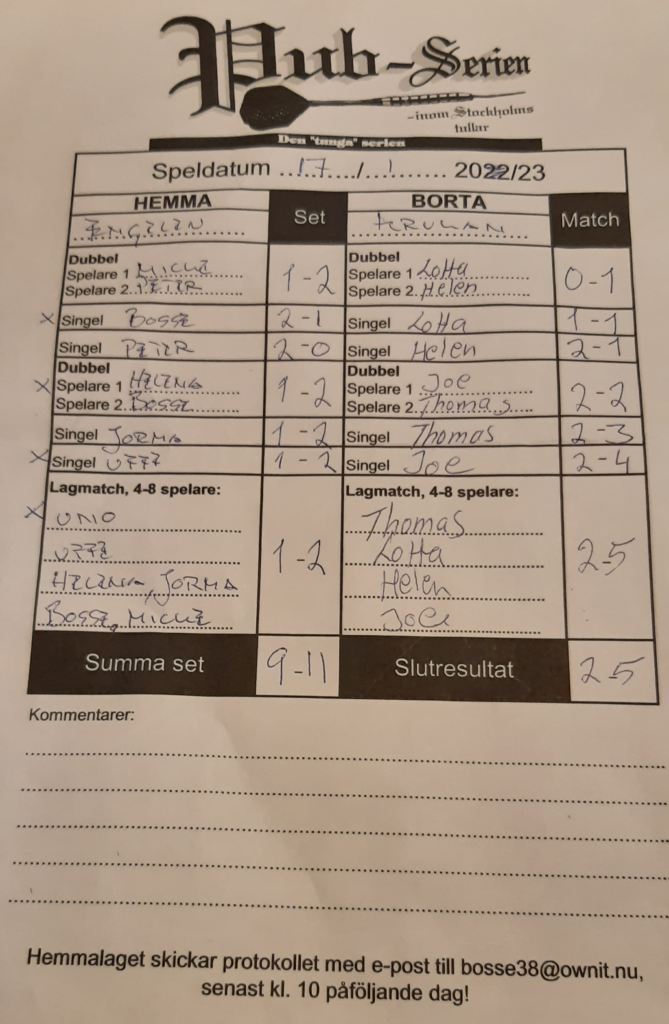 Pub-Serien
-inom Stockholms
tullar
Den "tunga" serien
Speldatum ..17..../..1........ 2022/23
HEMMA Set BORTA Match
ENGELEN KRUKAN
Dubbel Dubbel
Spelare 1 MICKE 1-2 Spelare 1 Lotta 0-1
Spelare 2. PETER Spelare 2. Helen
x Singel BOSSE 2-1 Singel Lotta 1-1
Singel PETER 2-0 Singel Helen 2-1
Dubbel Dubbel
x Spelare 1 HELENA 1-2 Spelare 1 Joe 2-2
Spelare 2. BOSSE Spelare 2. Thomas
Singel JORMA 1-2 Singel Thomas 2-3
x Singel UFFE 1-2 Singel Joe 2-4
Lagmatch, 4-8 spelare: Lagmatch, 4-8 spelare:
x UNO Thomas
UFFE 1-2 Lotta 2-5
HELENA, JORMA Helen
BOSSE, MICKE Joe
Summa set 9-11 Slutresultat 2-5
Kommentarer:
Hemmalaget skickar protokollet med e-post till bosse38@ownit.nu,
senast kl. 10 påföljande dag!